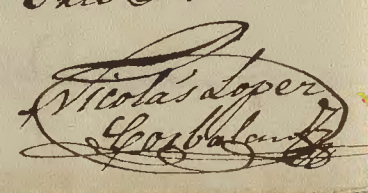 Nicolás Lopez
Corbalan